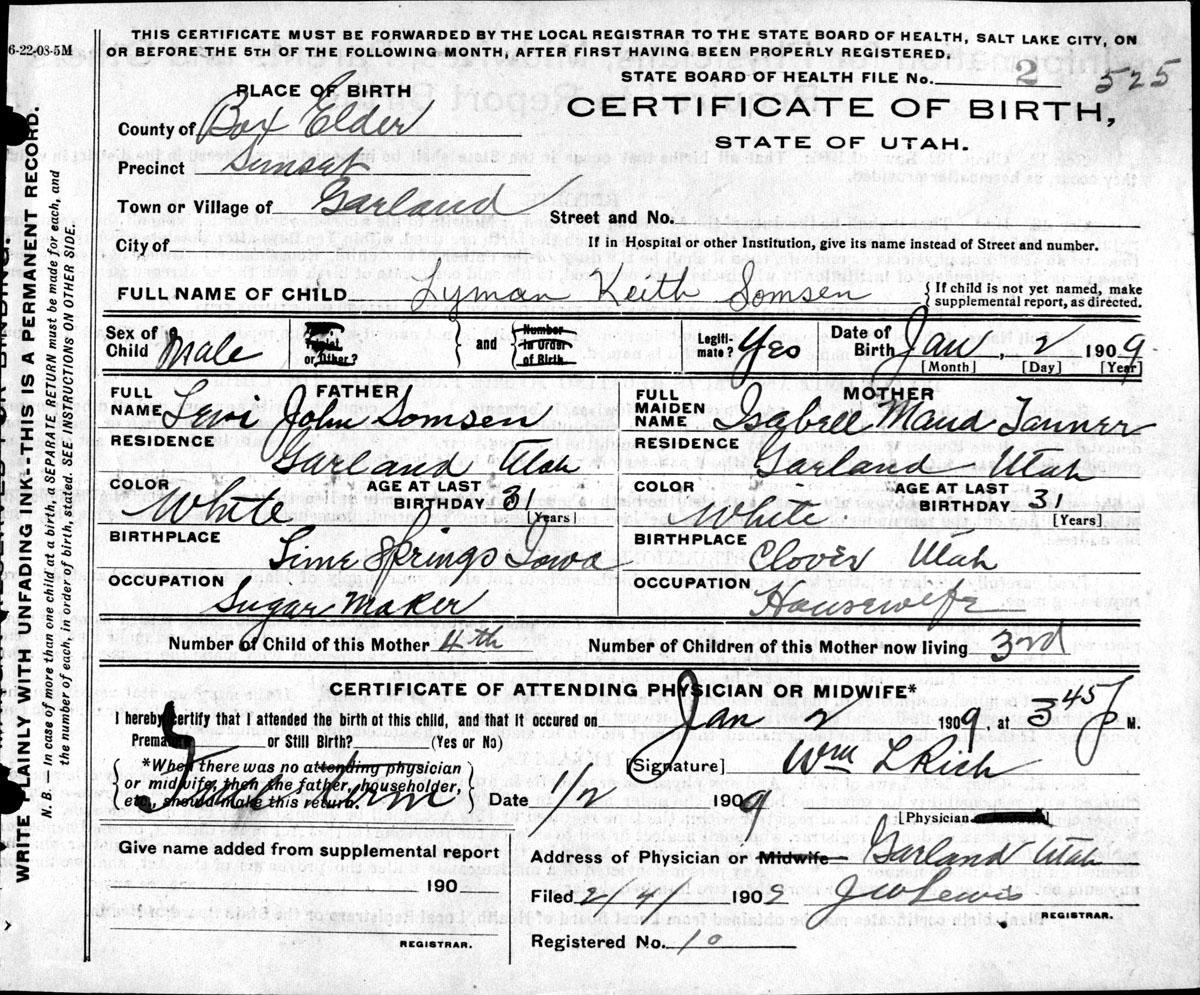 6-22-08-5M
THIS CERTIFICATE MUST BE FORWARDED BY THE LOCAL REGISTRAR TO THE STATE BOARD OF HEALTH, SALT LAKE CITY, ON
OR BEFORE THE 5TH OF THE FOLLOWING MONTH, AFTER FIRST HAVING BEEN PROPERLY REGISTERED.
STATE BOARD OF HEALTH FILE No. 2 525
PLACE OF BIRTH
CERTIFICATE OF BIRTH,
STATE OF UTAH.
County of Box Elder
Precinct
Town or Village of Garland
Street and No.
City of
If in Hospital or other Institution, give its name instead of Street and number.
FULL NAME OF CHILD Lyman Keith Somsen
{If child is not yet named, make
supplemental report, as directed.
Sex of Child Male
Triplet or Other?
and
Number in Order of Birth
Legiti-mate? Yes
Date of Birth Jan, 2 1909
[Month] [Day] [Year]
FATHER
FULL NAME Levi John Somsen
RESIDENCE
Garland Utah
COLOR White
AGE AT LAST BIRTHDAY 31
[Years]
BIRTHPLACE
Lime Springs Iowa
OCCUPATION
Sugar Maker
MOTHER
FULL MAIDEN NAME Isabell Maud Tanner
RESIDENCE
Garland Utah
COLOR White
AGE AT LAST BIRTHDAY 31
[Years]
BIRTHPLACE
Clover Utah
OCCUPATION
Housewife
Number of Child of this Mother 4th
Number of Children of this Mother now living 3rd
CERTIFICATE OF ATTENDING PHYSICIAN OR MIDWIFE*
I hereby certify that I attended the birth of this child, and that it occured on Jan 2 1909, at 3 45 P M.
Premature or Still Birth? (Yes or No)
*When there was no attending physician
or midwife, then the father, householder,
etc., should make this return.
[Signature] Wm L Rich
Date 1/2 1909
[Physician
Give name added from supplemental report
190
REGISTRAR.
Address of Physician or Midwife Garland Utah
Filed 2/4/ 1909 J W Lewis
REGISTRAR.
Registered No. 10
WRITE PLAINLY WITH UNFADING INK--THIS IS A PERMANENT RECORD.
N. B. — In case of more than one child at a birth, a SEPARATE RETURN must be made for each, and
the number of each, in order of birth, stated. SEE INSTRUCTIONS ON OTHER SIDE.